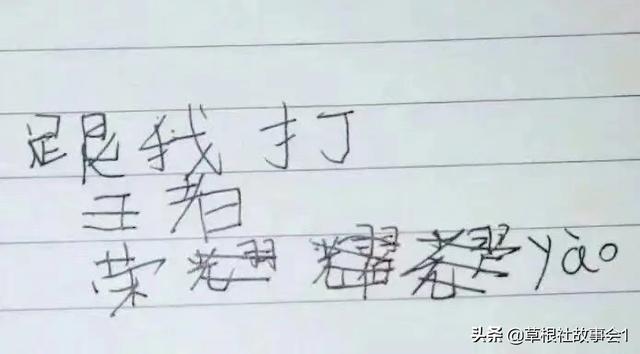 跟我打
王者
荣 yào
头条 @草根社故事会1